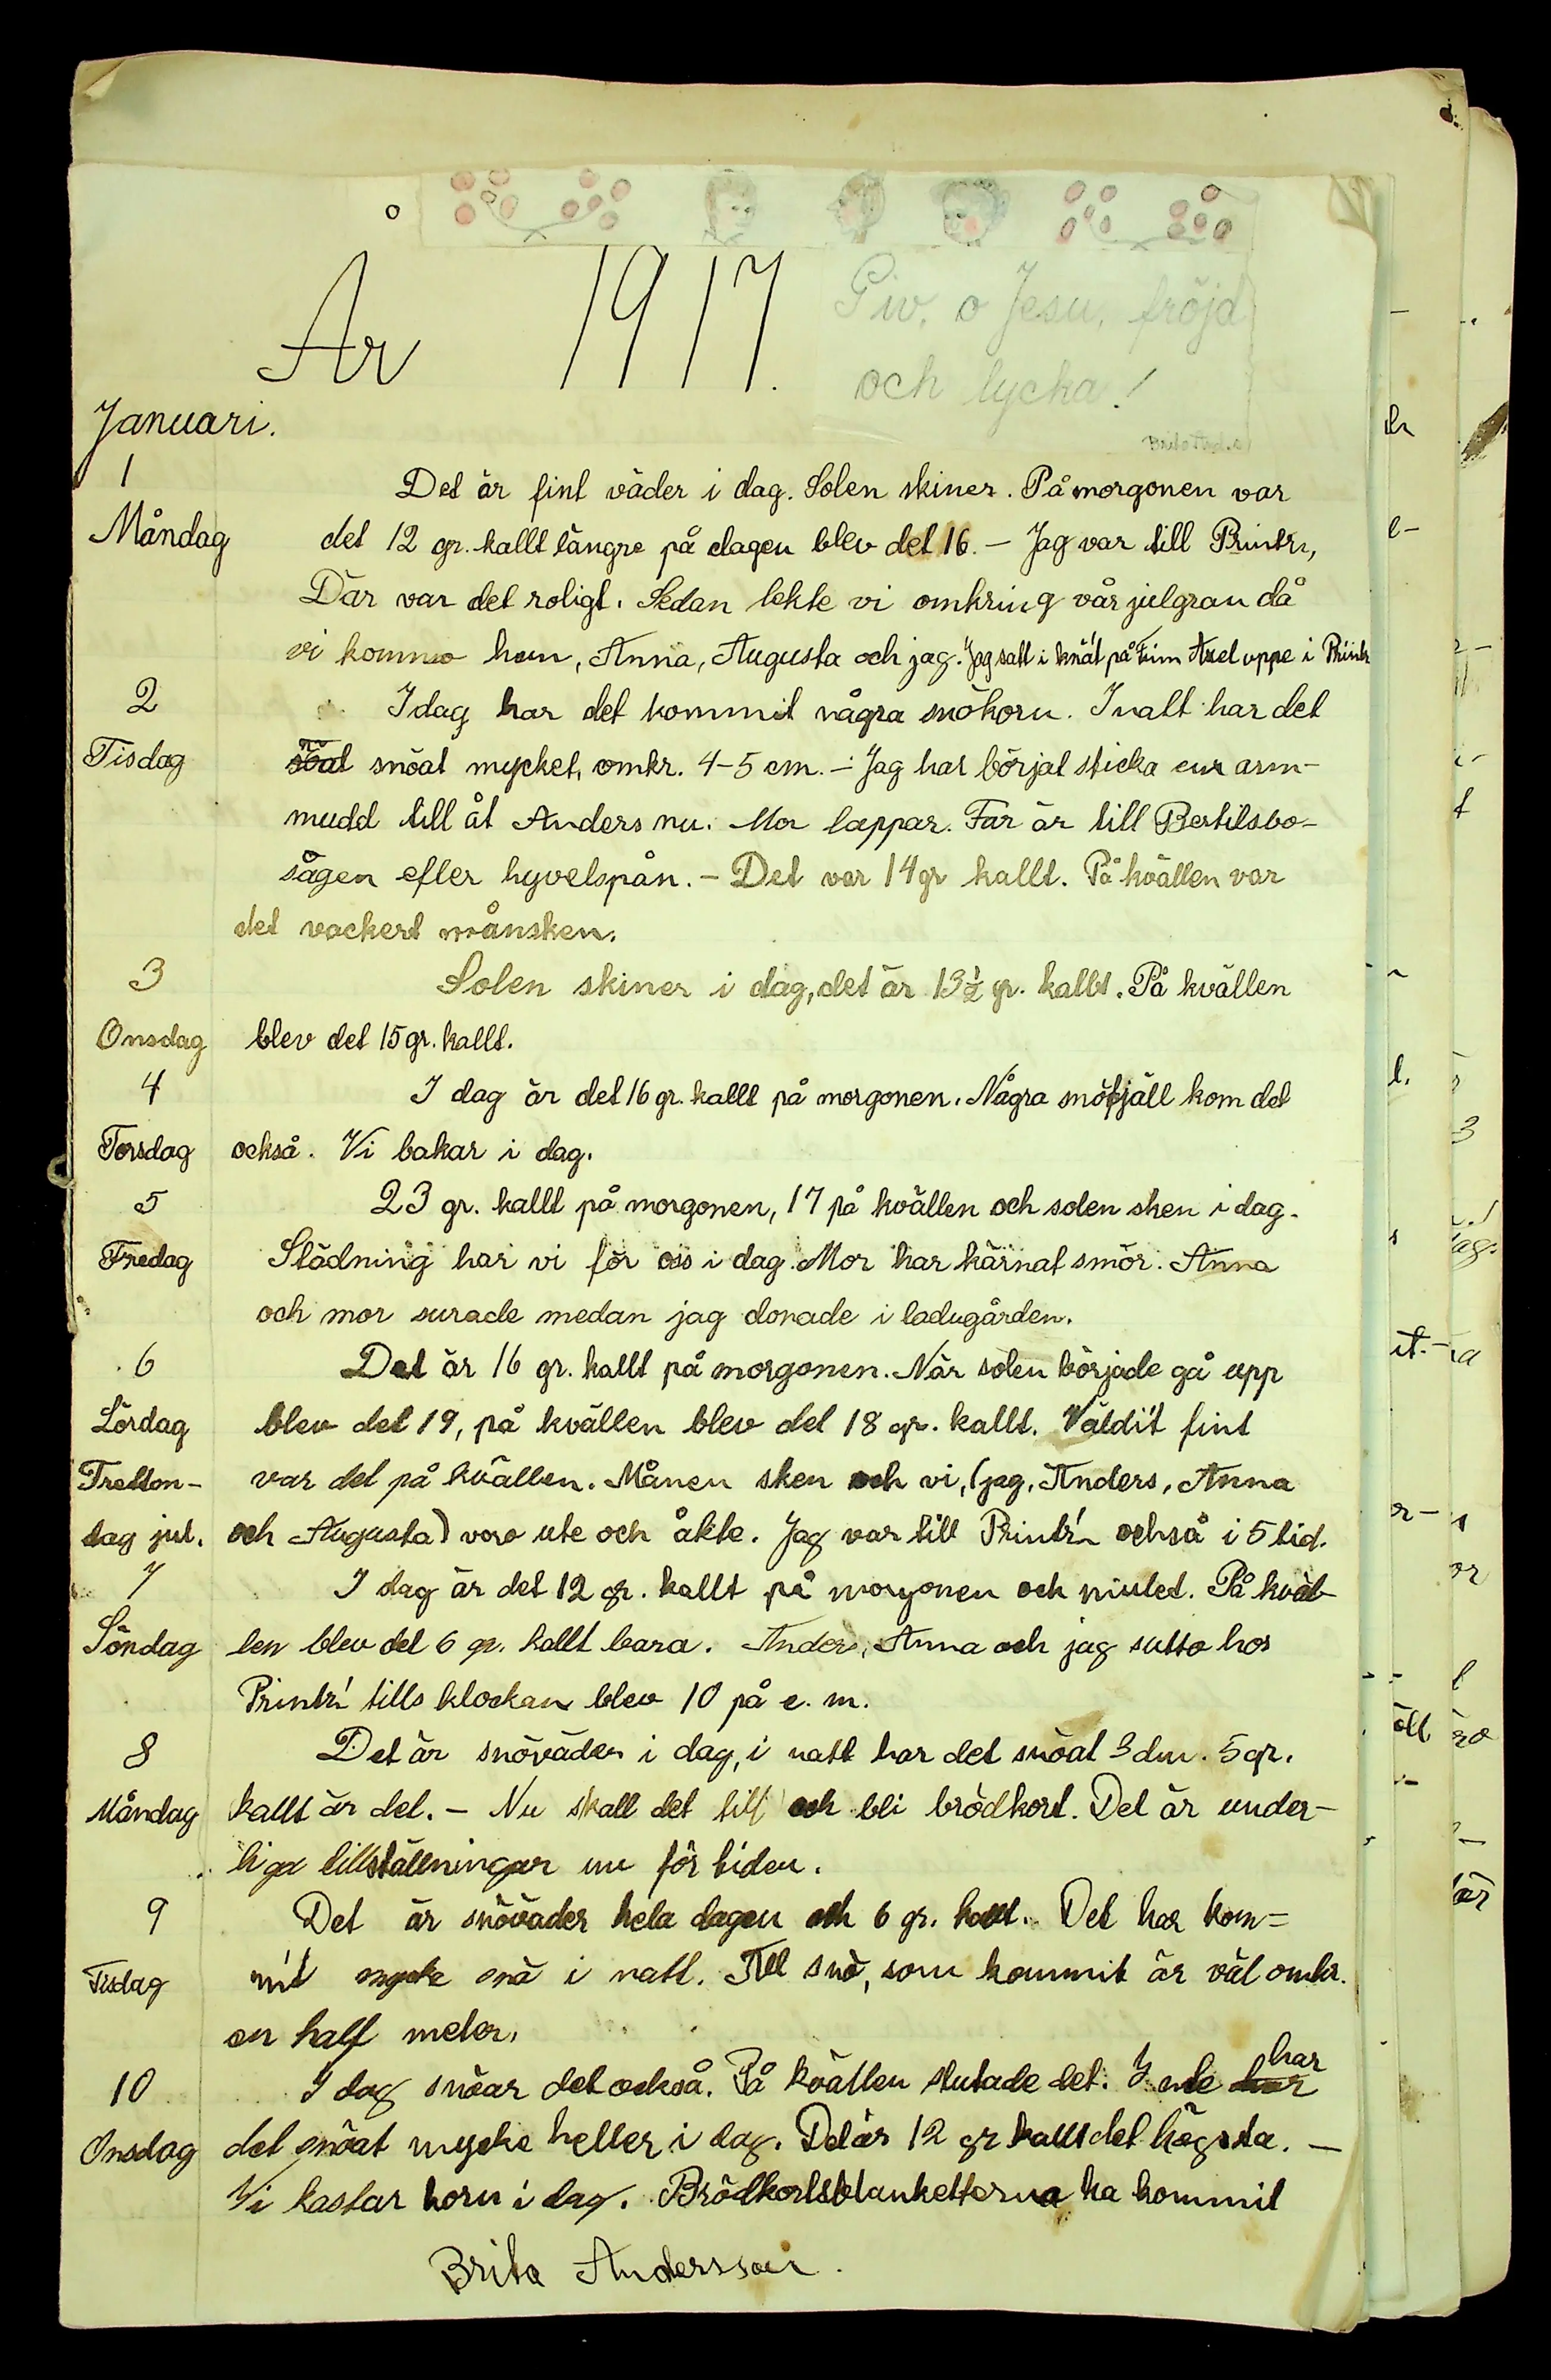 År 1917.
Giv, o Jesu, fröjd
och lycka!
Januari.
1
Måndag
Det är fint väder i dag. Solen skiner. På morgonen var
det 12 gr. kallt längre på dagen blev det 16. – Jag var till Printz,
Där var det roligt. Sedan lekte vi omkring vår julgran då
vi kommo hem, Anna, Augusta och jag. Jag satt i knät på Axel uppe i
2
Tisdag
I dag har det kommit några snökorn. I natt har det
snöat mycket, omkr. 4–5 cm. – Jag har börjat sticka en arm-
mudd till åt Anders nu. Mor lappar. Far är till Bertilsbo-
sågen efter hyvelspån. – Det var 14 gr kallt. På kvällen var
det vackert månsken.
3
Onsdag
Solen skiner i dag, det är 13½ gr. kallt. På kvällen
blev det 15 gr. kallt.
4
Torsdag
I dag är det 16 gr. kallt på morgonen. Några snöfjäll kom det
också. Vi bakar i dag.
5
Fredag
23 gr. kallt på morgonen, 17 på kvällen och solen sken i dag.
Städning har vi för oss i dag. Mor har kärnat smör. Anna
och mor surade medan jag donade i ladugården.
6
Lördag
Tretton-
dag jul.
Det är 16 gr. kallt på morgonen. När solen började gå upp
blev det 19, på kvällen blev det 18 gr. kallt. Väldi't fint
var det på kvällen. Månen sken och vi, (jag, Anders, Anna
och Augusta) voro ute och åkte. Jag var till också i 5 tid.
7
Söndag
I dag är det 12 gr. kallt på morgonen och mulet. På kväl-
len blev det 6 gr. kallt bara. Anders, Anna och jag sutto hos
tills klockan blev 10 på e. m.
8
Måndag
Det är snöväder i dag, i natt har det snöat 3 dm. 5 gr.
kallt är det. – Nu skall det till och bli brödkort. Det är under-
liga tillställningar nu för tiden.
9
Tisdag
Det är snöväder hela dagen och 6 gr. kallt. Det har kom=
mit mycke snö i natt. All snö, som kommit är väl omkr.
en half meter.
10
Onsdag
I dag snöar det också. På kvällen slutade det. Inte har
det snöat mycke heller i dag. Det är 12 gr kallt det högsta. –
Vi kastar korn i dag. Brödkortsblanketterna ha kommit
Brita Andersson.